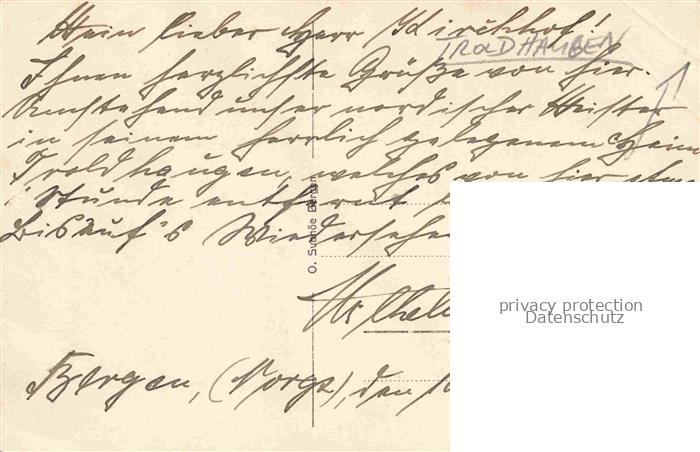 Mein lieber Herr Kirchhof!
TROLDHAUGEN
Ihnen herzlichste Grüße von hier.
Umstehend unser nordischer Meister
in seinem herrlich gelegenem Heim
Troldhaugen, welches von hier
Stunde entfernt
Bis auf's Wiedersehen
O. Svanöe Bergen
Bergen, (Norge), den
privacy protection
Datenschutz